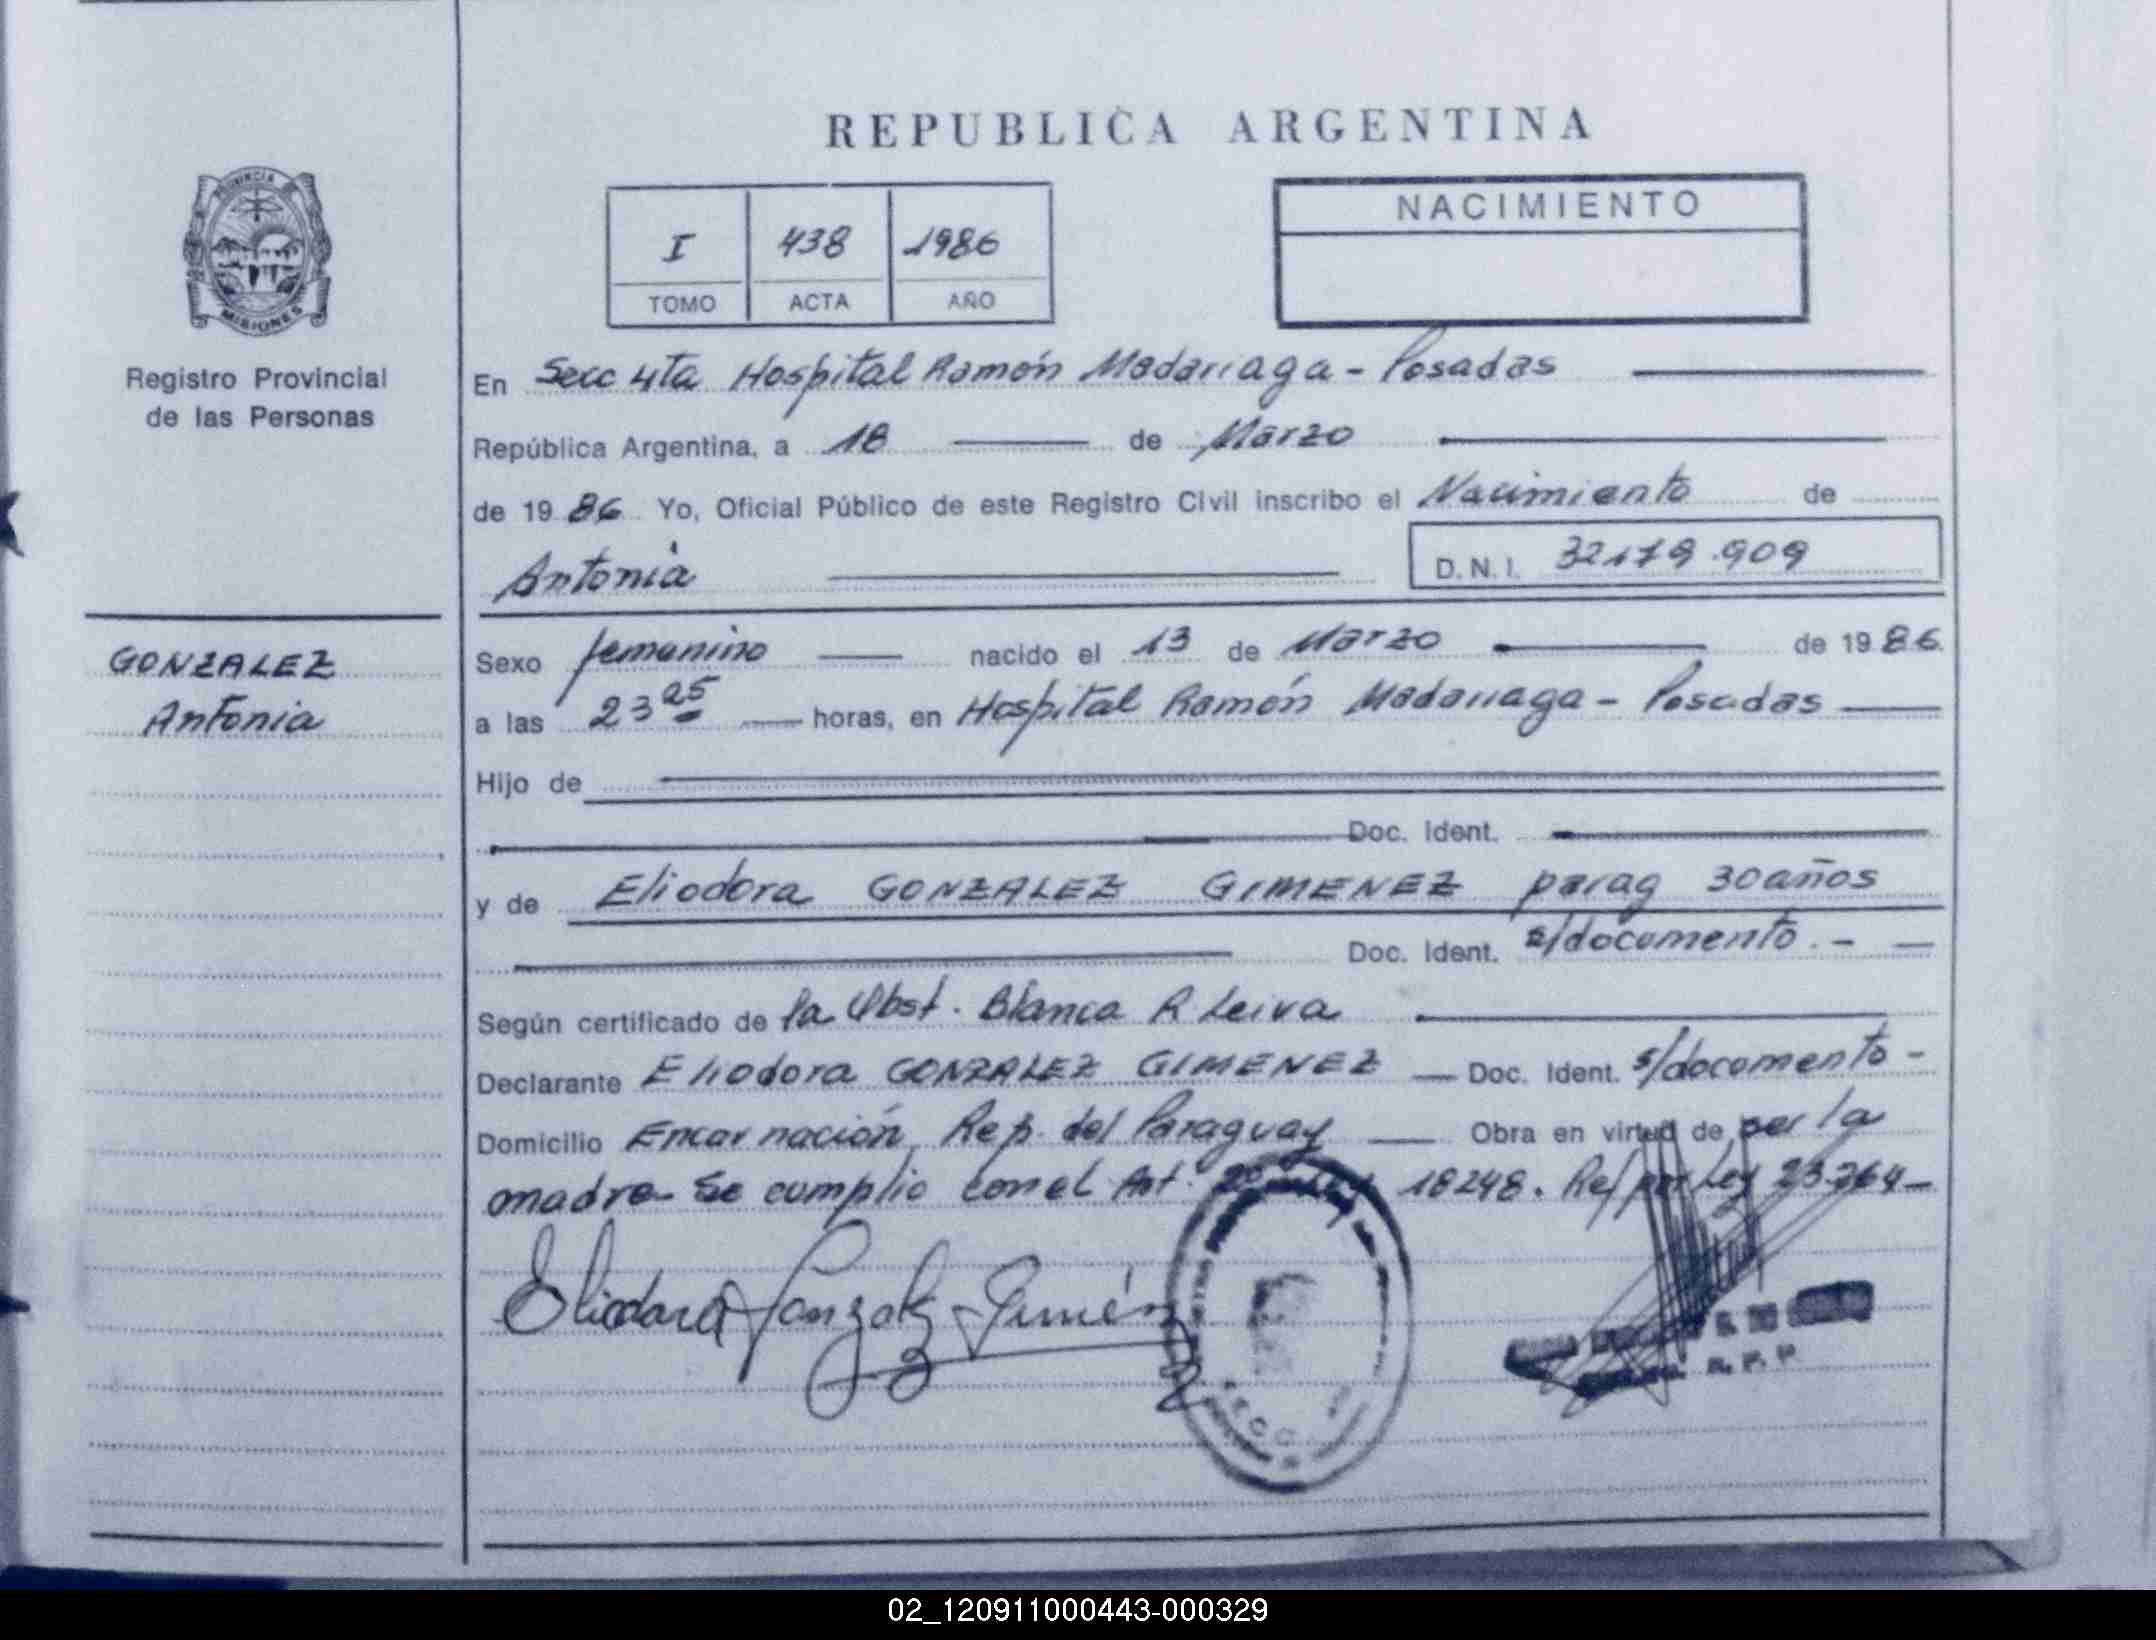 REPUBLICA ARGENTINA
PROVINCIA
MISIONES
Registro Provincial
de las Personas
I 438 1986
TOMO ACTA AÑO
NACIMIENTO
En Secc 4ta Hospital Ramón Madariaga - Posadas
República Argentina, a 18 de Marzo
de 1986 Yo, Oficial Público de este Registro Civil inscribo el Nacimiento de
Antonia D.N.I. 32179.909
GONZALEZ
Antonia
Sexo femenino nacido el 13 de Marzo de 1986.
a las 23 25 horas, en Hospital Ramón Madariaga - Posadas
Hijo de
Doc. Ident.
y de Eliodora GONZALEZ GIMENEZ parag 30 años
Doc. Ident. s/documento.-
Según certificado de la Obst. Blanca R Leiva
Declarante Eliodora GONZALEZ GIMENEZ Doc. Ident. s/documento-
Domicilio Encarnación, Rep. del Paraguay Obra en virtud de ser la
madre- Se cumplio con el Art. 18248. Ref por Ley 23.264-
Eliodora Gonzalez Giménez
R.P.P.
02_120911000443-000329